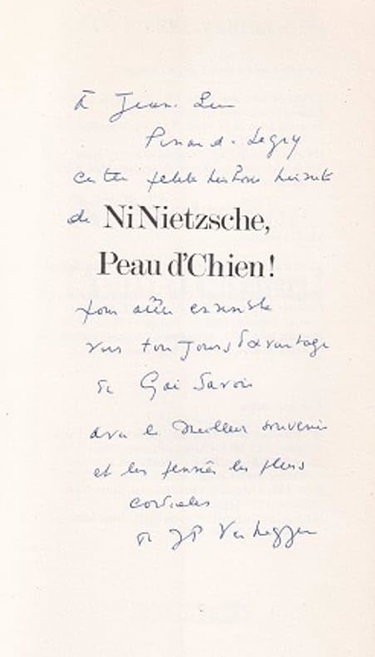 À Jean-Luc
Pinard-Legry
cette petite histoire
de Ni Nietzsche,
Peau d'Chien!
pour aller ensemble
vers toujours davantage
de Gai Savoir
avec le meilleur souvenir
et les pensées les plus
cordiales
de JP Verheggen